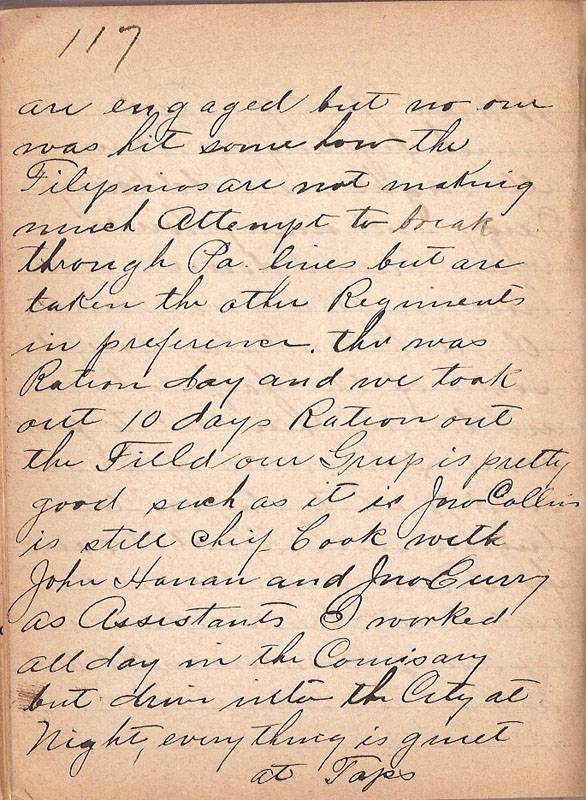 117
are engaged but no one
was hit some how the
Filipinos are not making
much Attempt to break
through Pa. lines but are
taken the other Regiments
in preference. the was
Ration day and we took
out 10 days Ration out
the Fielld our Grup is pretty
good such as it is Jno Collins
is still chif Cook with
John Hanan and Jno Curry
as Assistants I worked
all day in the Comisary
but drive into the City at
Night, everything is quiet
at Taps